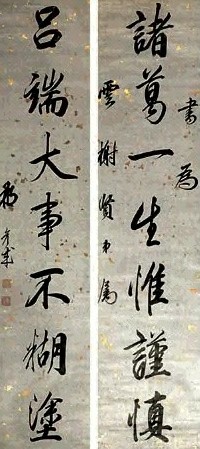 諸葛一生惟謹慎
呂端大事不糊塗
書為
雲榭賢弟屬